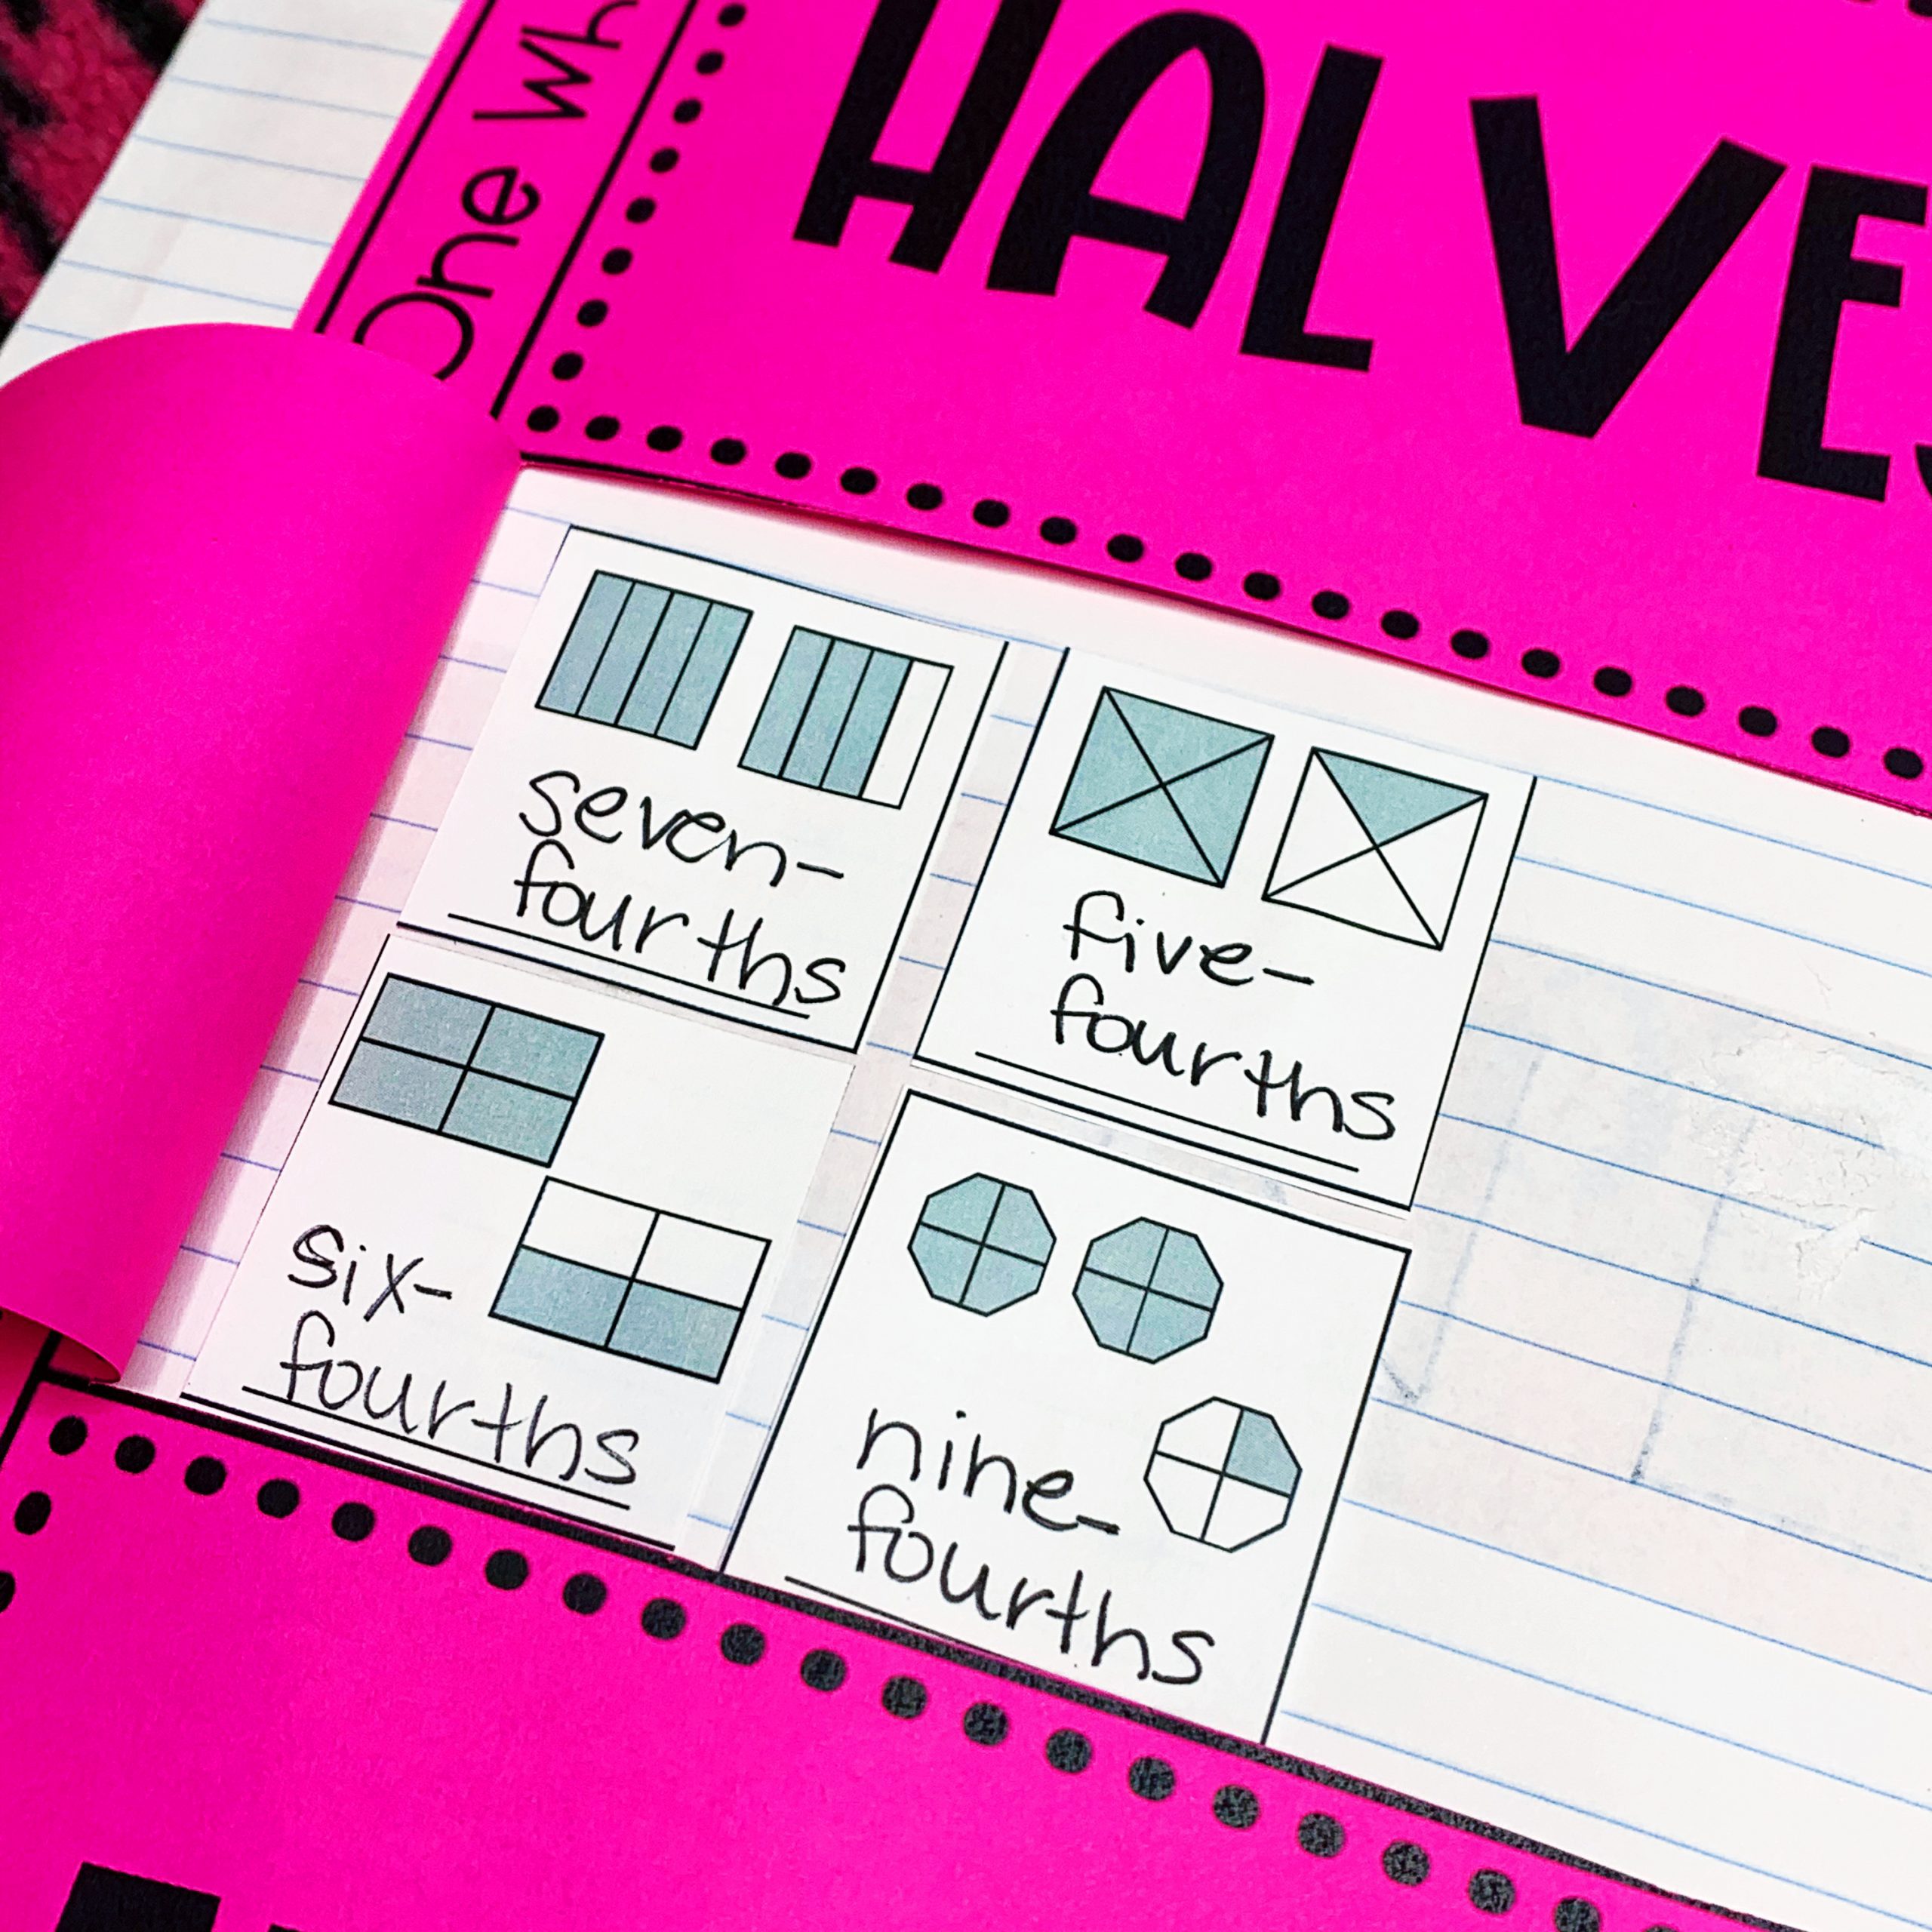 One Wh
HALVES
seven-
fourths
five-
fourths
six-
fourths
nine-
fourths